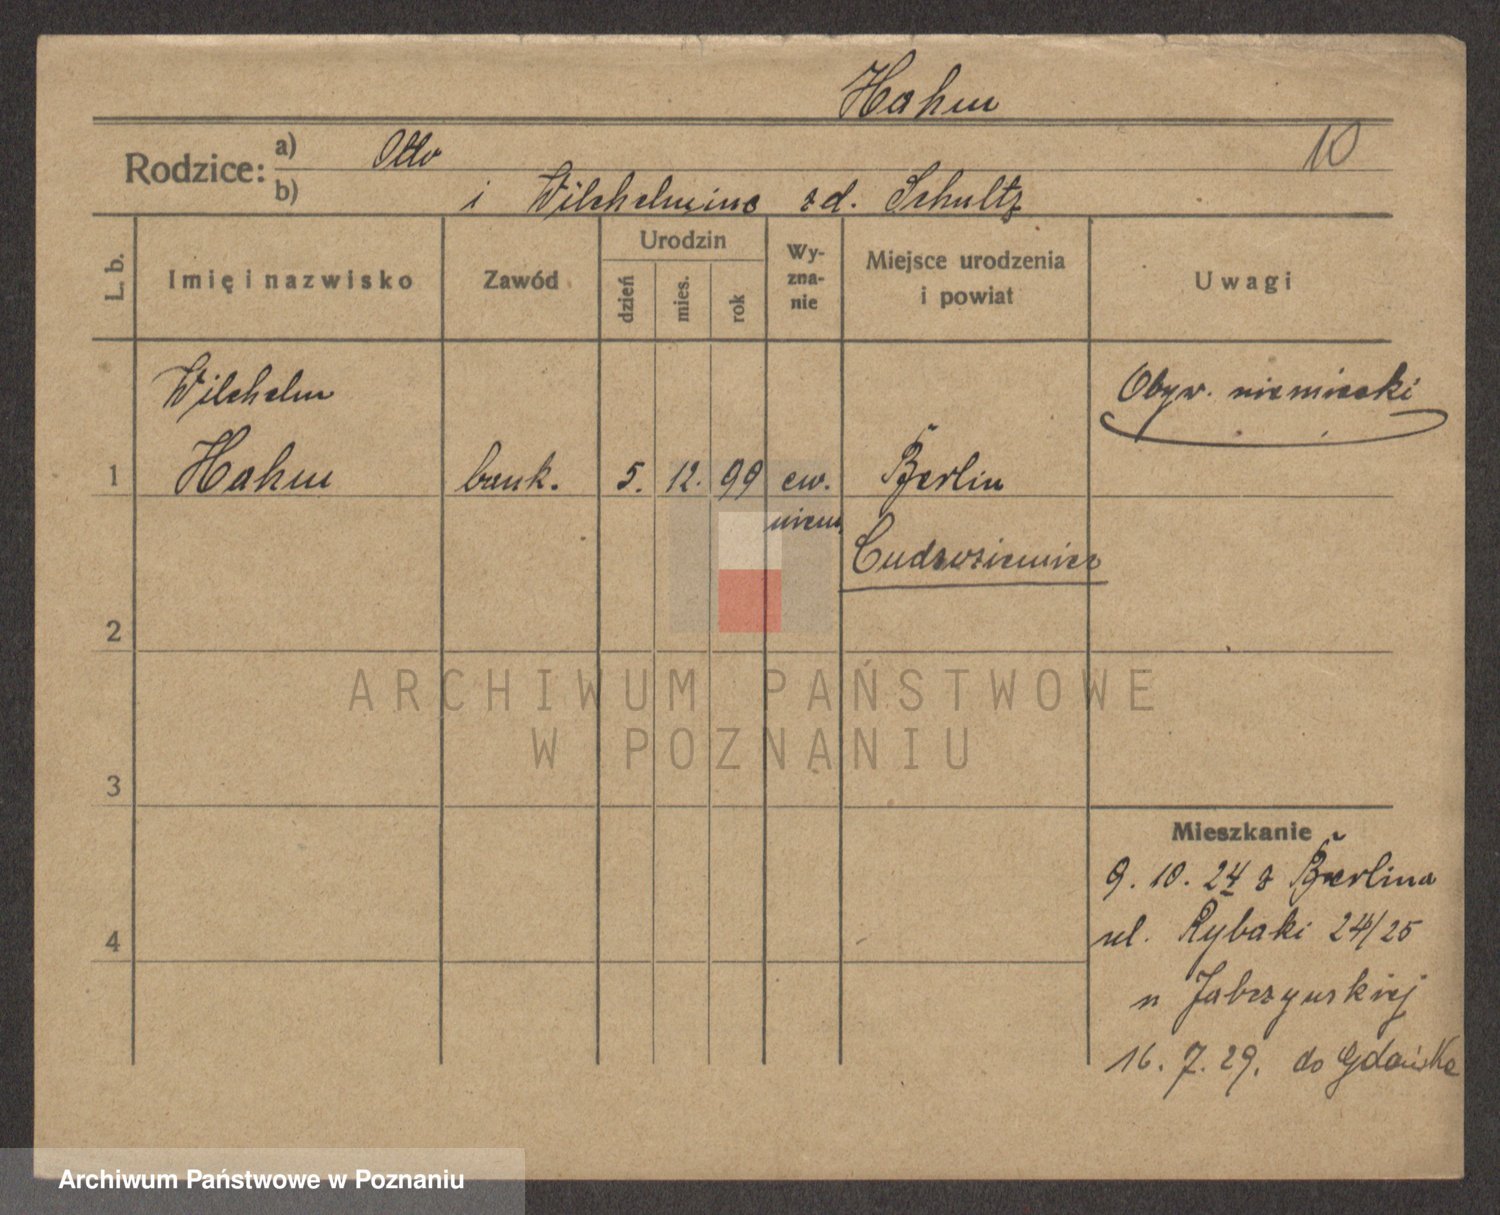 Hahm
10
Rodzice:
a) Otto
b) i Wilchelmine zd. Schultz
L. b.
Imię i nazwisko
Zawód
Urodzin
dzień
mies.
rok
Wy-
zna-
nie
Miejsce urodzenia
i powiat
Uwagi
Wilchelm
Obyw. niemiecki
1 Hahm bank. 5. 12. 99 ew. Berlin
niem.
Cudzoziemiec
2
3
4
Mieszkanie
9. 10. 24 z Berlina
ul. Rybaki 24/25
u Jabczyńskiej
16. 7. 29. do Gdańska
ARCHIWUM PAŃSTWOWE
W POZNANIU
Archiwum Państwowe w Poznaniu